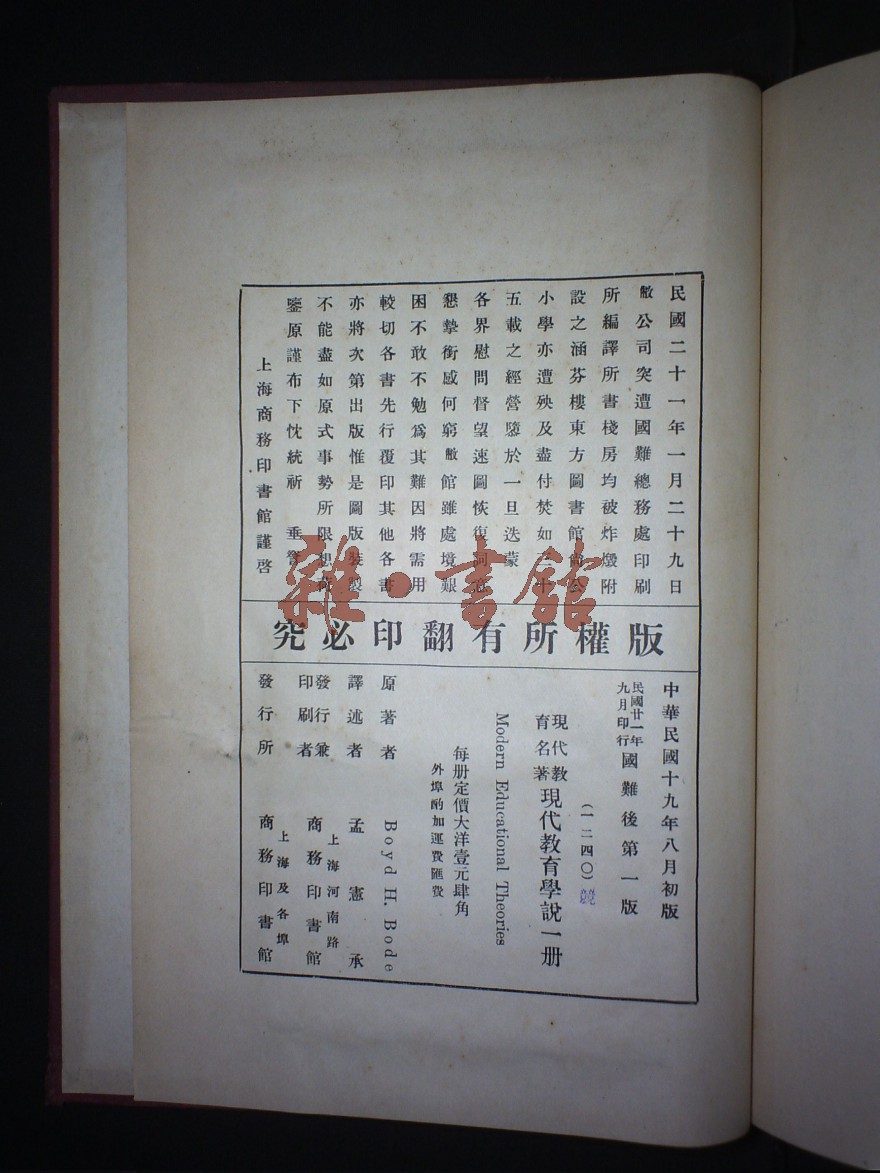 民國二十一年一月二十九日
敝公司突遭國難總務處印刷
所編譯所書棧房均被炸燬附
設之涵芬樓東方圖書館尚公
小學亦遭殃及盡付焚如三十
五載之經營隳於一旦迭蒙
各界慰問督望速圖恢復詞意
懇摯銜感何窮敝館雖處境艱
困不敢不勉爲其難因將需用
較切各書先行覆印其他各書
亦將次第出版惟是圖版裝製
不能盡如原式事勢所限想荷
鑒原謹布下忱統祈 垂詧
上海商務印書館謹啓
雜·書館
版權所有翻印必究
中華民國十九年八月初版
民國廿一年九月印行國難後第一版
(一二四〇)
現代教育名著 現代教育學說一册
Modern Educational Theories
每册定價大洋壹元肆角
外埠酌加運費匯費
原著者 Boyd H. Bode
譯述者 孟憲承
發行兼印刷者 上海河南路 商務印書館
發行所 上海及各埠 商務印書館